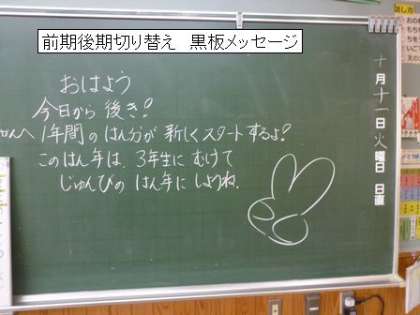 前期後期切り替え 黒板メッセージ
おはよう
今日から 後き!
1年間の はん分が 新しく スタートするよ!
このはん年は、3年生に むけて
じゅんびの はん年に しようね.
十月十一日火曜日 日直